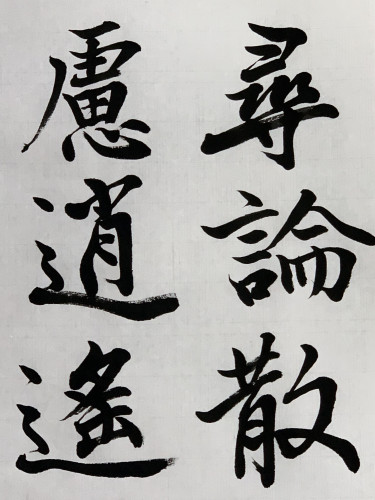 尋論散
慮逍遙